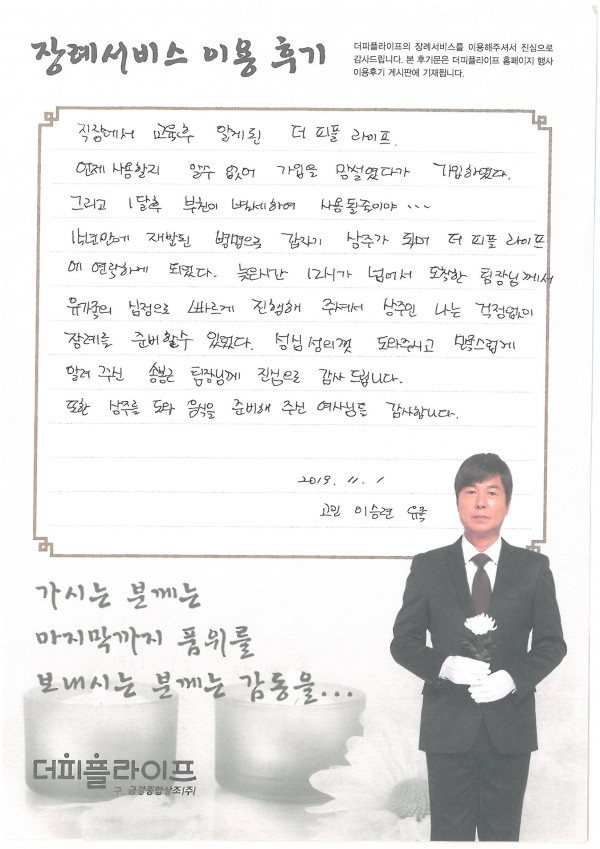 장례서비스 이용 후기
더피플라이프의 장례서비스를 이용해주셔서 진심으로
감사드립니다. 본 후기문은 더피플라이프 홈페이지 행사
이용후기 게시판에 기재됩니다.
직장에서 교육후 알게된 더 피플 라이프.
언제 사용할지 알수 없어 가입을 망설였다가 가입하였다.
그리고 1달후 부친이 별세하여 사용될줄이야...
1년만에 재발된 병명으로 갑자기 상주가 되며 더 피플 라이프
에 연락하게 되었다. 늦은시간 12시가 넘어서 도착한 팀장님께서
유가족의 심정으로 빠르게 진행해 주셔서 상주인 나는 걱정없이
장례를 준비할수 있었다. 성심성의껏 도와주시고 믿음스럽게
알려 주신 팀장님께 진심으로 감사 드립니다.
또한 상주를 도와 음식을 준비해 주신 여사님들 감사합니다.
2019. 11. 1
고인 이승련 유족
가시는 분께는
마지막까지 품위를
보내시는 분께는 감동을...
더피플라이프
구. 금강종합상조(주)